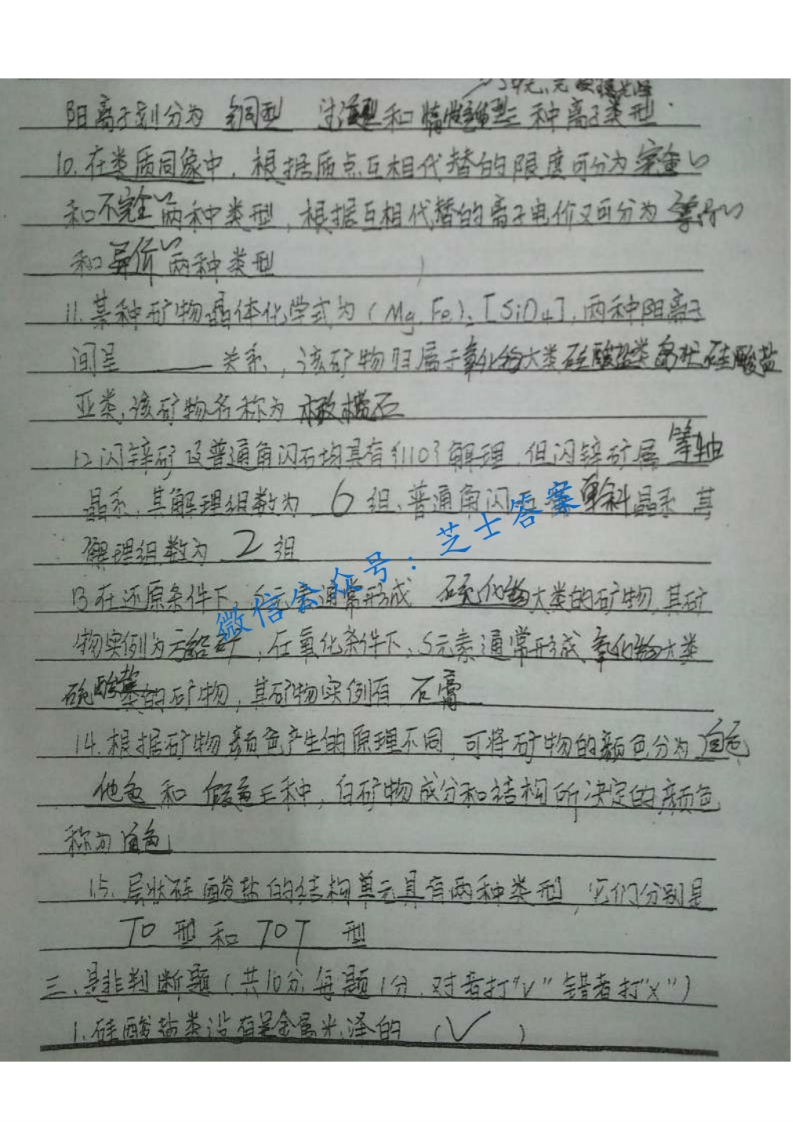 阳离子划分为 铜型 过渡型和惰性气体型三种离子类型.
10.在类质同象中，根据质点互相代替的限度可分为完全
和不完全两种类型，根据互相代替的离子电价又可分为等价
和异价两种类型
11.某种矿物晶体化学式为(Mg,Fe)₂[SiO4],两种阳离子
间呈____关系,该矿物归属于氧化物大类硅酸盐类岛状硅酸盐
亚类,该矿物名称为橄榄石
12.闪锌矿及普通角闪石均具有{110}解理,但闪锌矿属等轴
晶系,其解理组数为 6 组,普通角闪石 单斜晶系 其
解理组数为 2 组
13.在还原条件下,S元素通常形成 硫化物大类的矿物,其矿
物实例为方铅矿,在氧化条件下,S元素通常形成氧化物大类
硫酸盐类的矿物,其矿物实例有 石膏
14.根据矿物颜色产生的原理不同,可将矿物的颜色分为自色
他色 和 假色三种,自矿物成分和结构所决定的颜色
称为自色
15.层状硅酸盐的结构单元具有两种类型,它们分别是
TO 型 和 TOT 型
三、是非判断题(共10分,每题1分,对者打"√"错者打"×")
1.硅酸盐类没有是金属光泽的 (√)
微信公众号：芝士答案